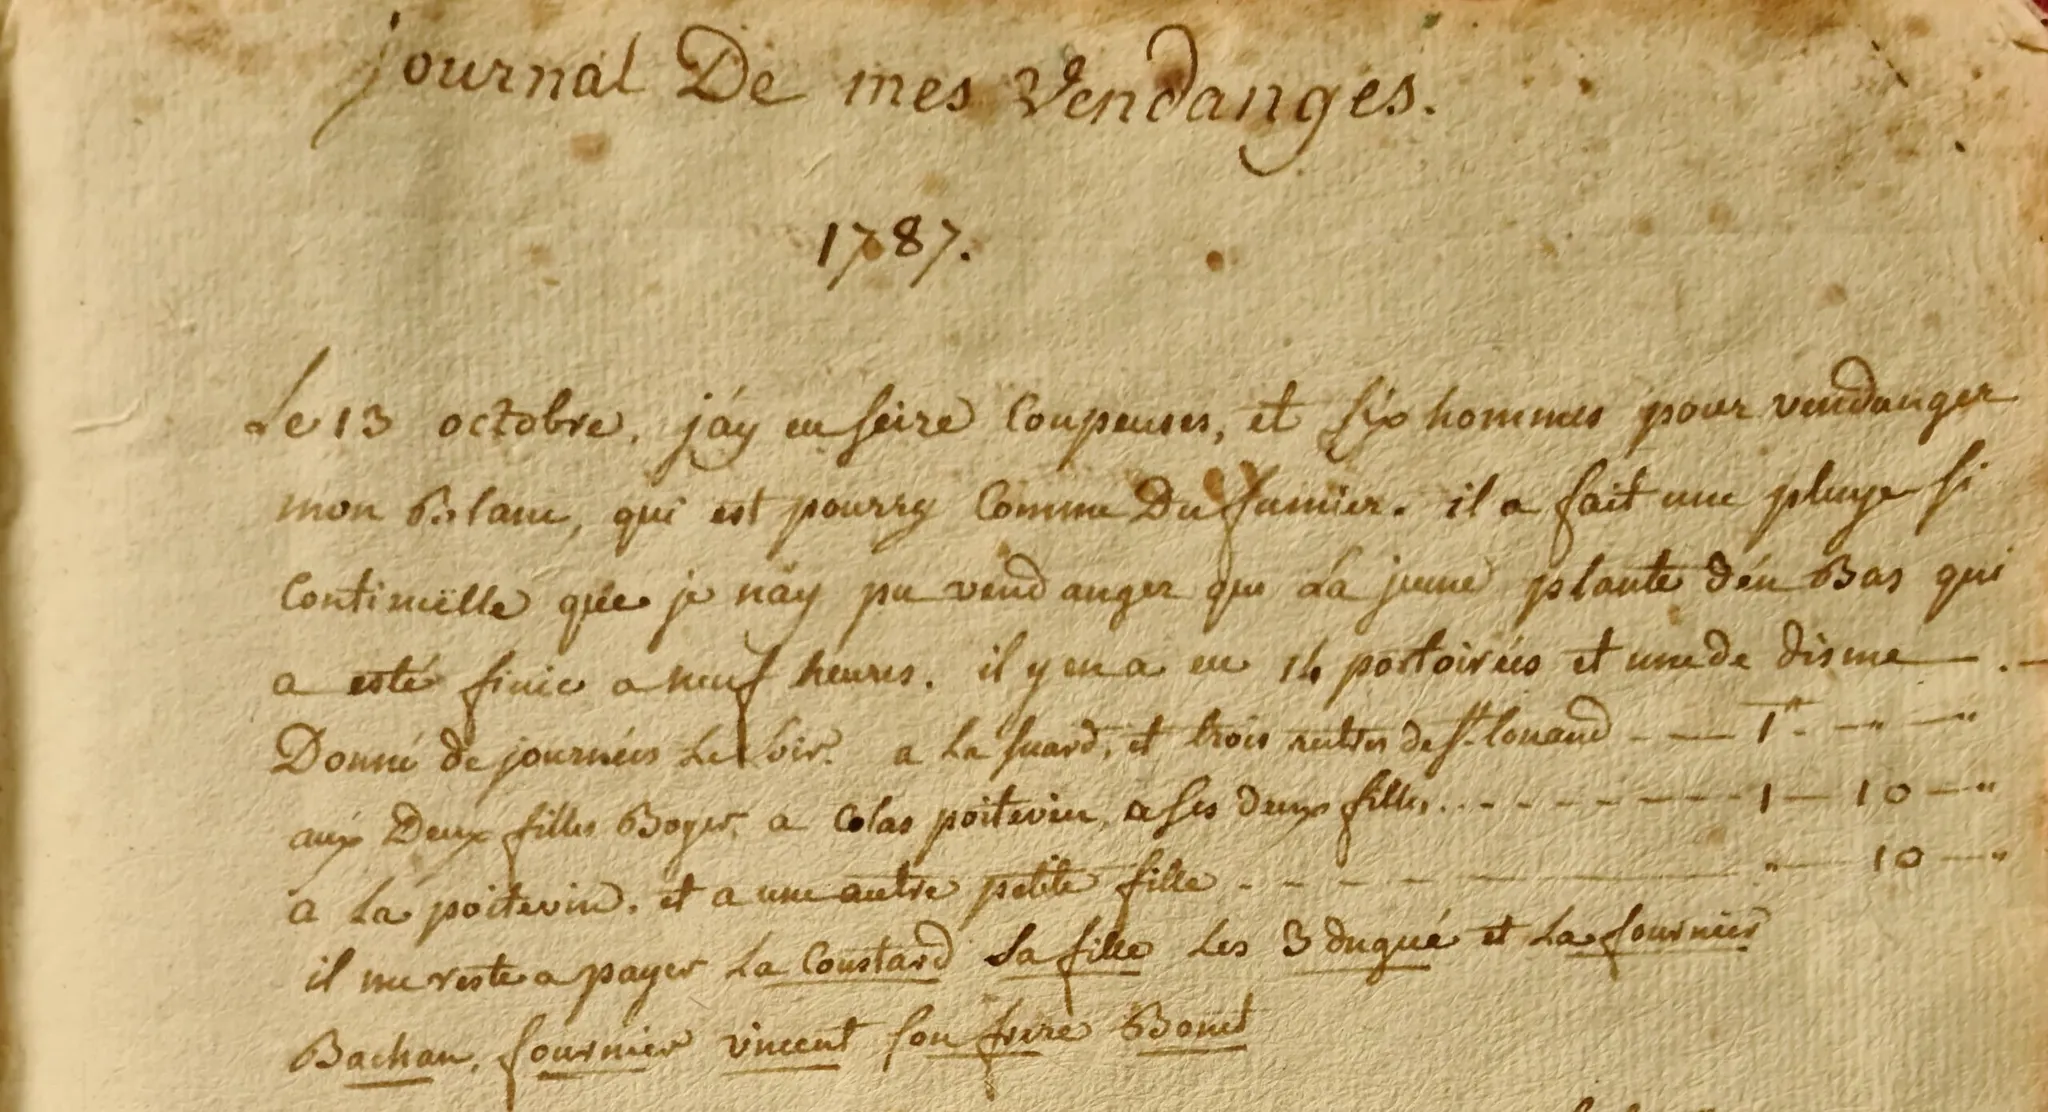 journal De mes Vendanges.
1787.
Le 13 octobre. j'ay eu seize Coupeuses, et six hommes pour vendanger
mon Blanc, qui est pourry Comme Du fumier. il a fait une pluye si
Continüelle que je n'ay pu vendanger que La jeune plante d'én Bas qui
a esté finie a neuf heures. il y en a eu 14 portoirées et une de disme
Donné de journées Le soir. a La suard, et trois autres de St. louand 1tt. " "
aux Deux filles Boyer, a Colas poitevin, a ses deux filles 1 10 "
a La poitevin. et a une autre petite fille " 10 "
il me reste a payer La Coustard Sa fille Les 3 dugué et La fournier
Bachan, fournier vincent son frere Bonet